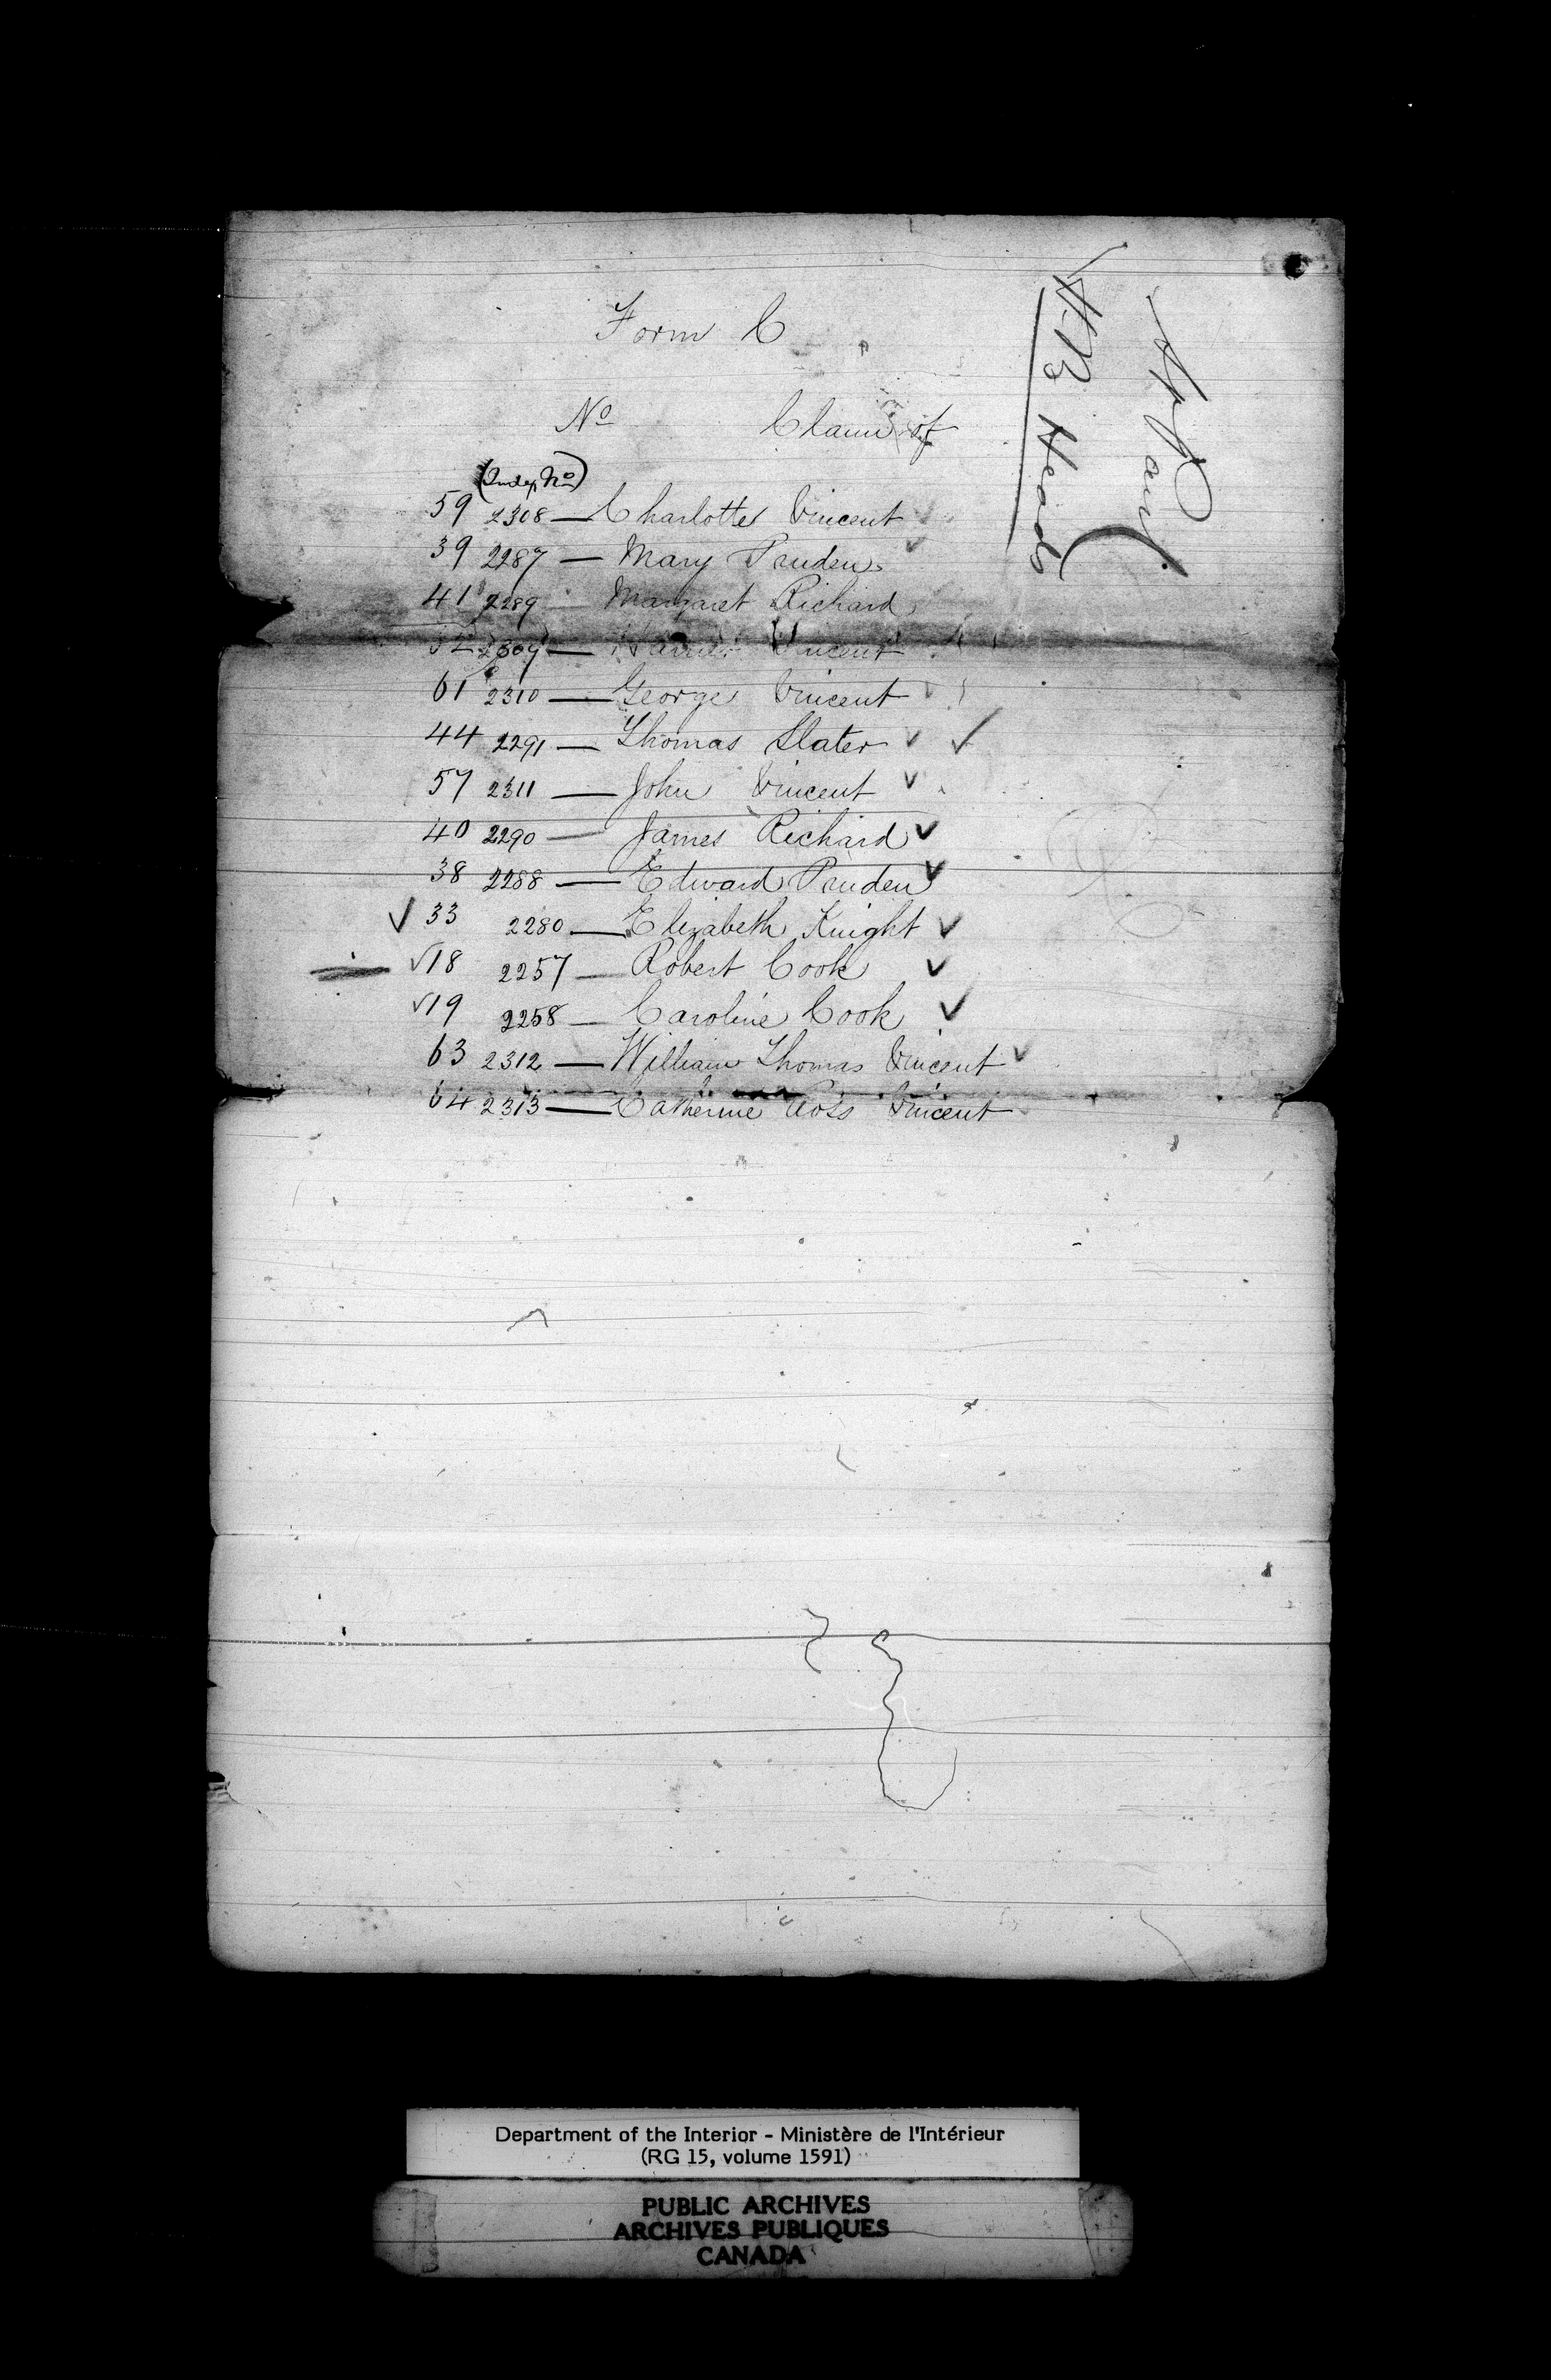 Form C
No Claim of
(Index No)
59 2308 — Charlotte Vincent ✓
39 2287 — Mary Pruden ✓
41 2289 — Margaret Richard
2309 — Harriet Vincent
61 2310 — George Vincent ✓
44 2291 — Thomas Slater ✓ ✓
57 2311 — John Vincent ✓
40 2290 — James Richard ✓
38 2288 — Edward Pruden ✓
✓ 33 2280 — Elizabeth Knight ✓
✓ 18 2257 — Robert Cook ✓
✓ 19 2258 — Caroline Cook ✓
63 2312 — William Thomas Vincent ✓
64 2313 — Catherine Ross Vincent
St Paul
H.B Heads
Department of the Interior - Ministère de l'Intérieur
(RG 15, volume 1591)
PUBLIC ARCHIVES
ARCHIVES PUBLIQUES
CANADA